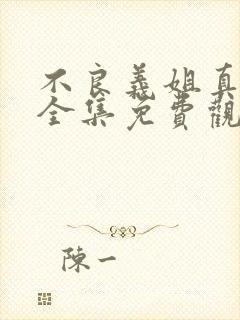 不良義姐真
全集免費觀
陳一